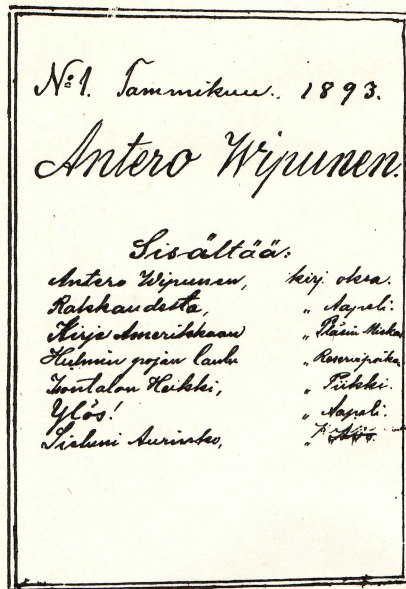 No: 1. Tammikuu. 1893.
Antero Wipunen.
Sisältää:
Antero Wipunen, kirj. okra.
Rakkaudesta, " Aapeli.
Kirje Amerikkaan "
Hulmin pojan laulu "
Isontalon Heikki, " Piikki.
Ylös! " Aapeli.
Sieluni Aurinko, "